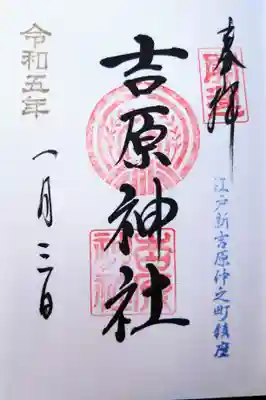 奉拝
江戸新吉原仲之町鎮座
吉原神社
令和五年
一月三日